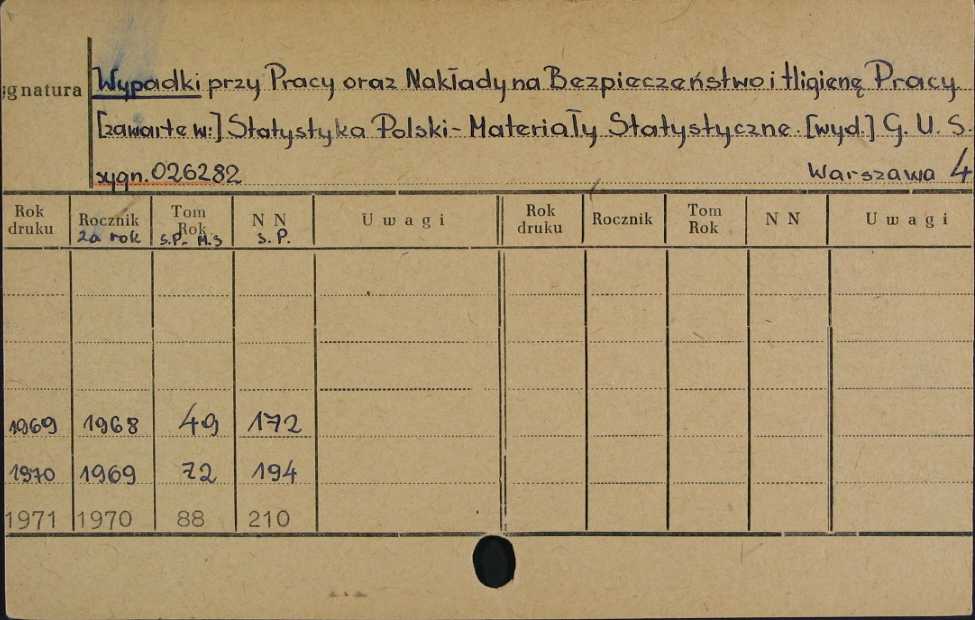 Wypadki przy Pracy oraz Nakłady na Bezpieczeństwo i Higienę Pracy
gnatura
[zawarte w:] Statystyka Polski - Materiały Statystyczne. [wyd.] G. U. S.
sygn. 026282 Warszawa 4
Rok druku Rocznik Tom Rok N N Uwagi Rok druku Rocznik Tom Rok N N Uwagi
za rok S.P. - M.S S. P.
1969 1968 49 172
1970 1969 72 194
1971 1970 88 210